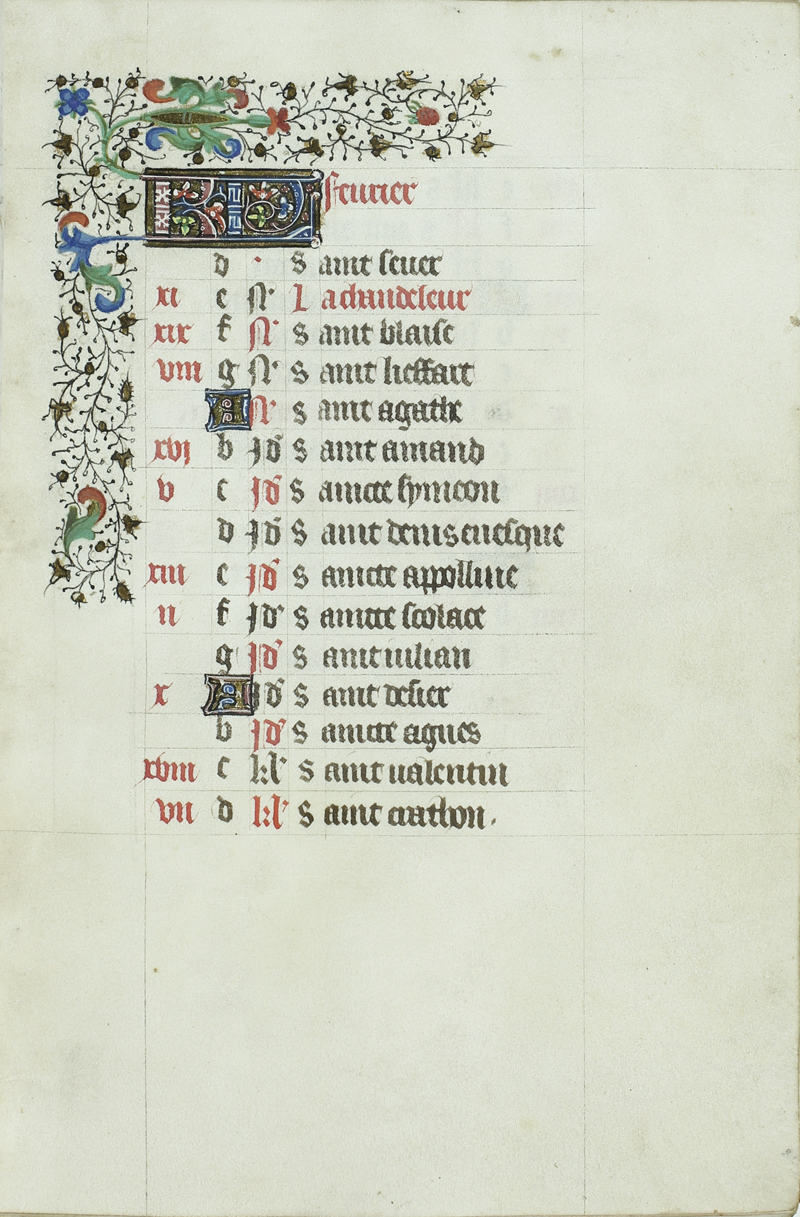 KL feurier
d · Saint seuer
xi e N La chandeleur
xix f N Saint blaise
viii g N Saint lieffart
A N Saint agathe
xvi b Id Saint amand
v c Id Saincte symeon
d Id Saint denis euesque
xiii e Id Saincte appolline
ii f Id Saincte scolace
g Id Saint iulian
x A Id Saint desier
b Id Saincte agnes
xviii c kl Saint ualentin
vii d kl Saint crathon.